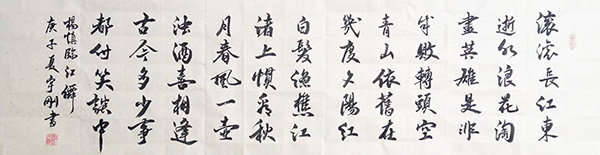 滚滚長江東
逝水浪花淘
盡英雄是非
成敗轉頭空
青山依舊在
幾度夕陽紅
白髮漁樵江
渚上慣看秋
月春風一壺
浊酒喜相逢
古今多少事
都付笑談中
楊慎臨江僊
庚子夏宇刚書